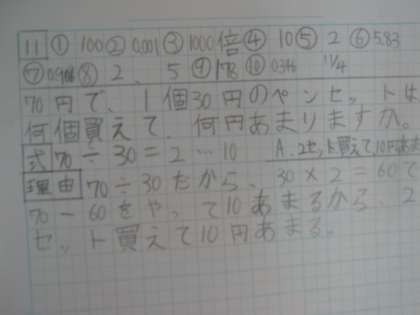 11 ① 100 ② 0.001 ③ 1000倍 ④ 10 ⑤ 2 ⑥ 5.83
⑦ 0.908 ⑧ 2、5 ⑨ 178 ⑩ 0.346 11/4
70円で、1個30円のペンセットは
何個買えて、何円あまりますか。
式 70÷30=2…10 A.2セット買えて10円あまる
理由 70÷30だから、30×2=60で
70-60をやって10あまるから、2
セット買えて10円あまる。